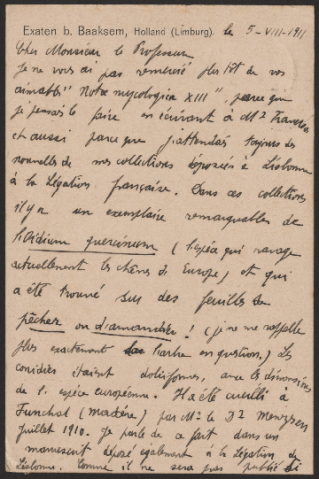 Exaten b. Baaksem, Holland (Limburg). le 5-VIII-1911
Cher Monsieur le Professeur
Je ne vous ai pas remercié plus tôt de vos
aimables "Notæ mycologicæ XIII" parce que
je pensais le faire en écrivant à Mr
et aussi parce que j'attendais toujours des
nouvelles de mes collections déposées à Lisbonne
à la Légation française. Dans ces collections
il y a un exemplaire remarquable de
l'Oidium quercinum (l'espéce qui ravage
actuellement les chênes d'Europe) et qui
a été trouvé sur des feuilles de
pêcher ou d'amandier! (je ne me rappelle
plus exactement l'arbre en question.) Les
conidies étaient doliiformes, avec les dimensions
de l'espèce européenne. Il a été cueilli à
Funchal (Madère) par Mr le Dr
juillet 1910. Je parle de ce fait dans un
manuscrit déposé également à la Légation de
Lisbonne. Comme il ne sera pas publié